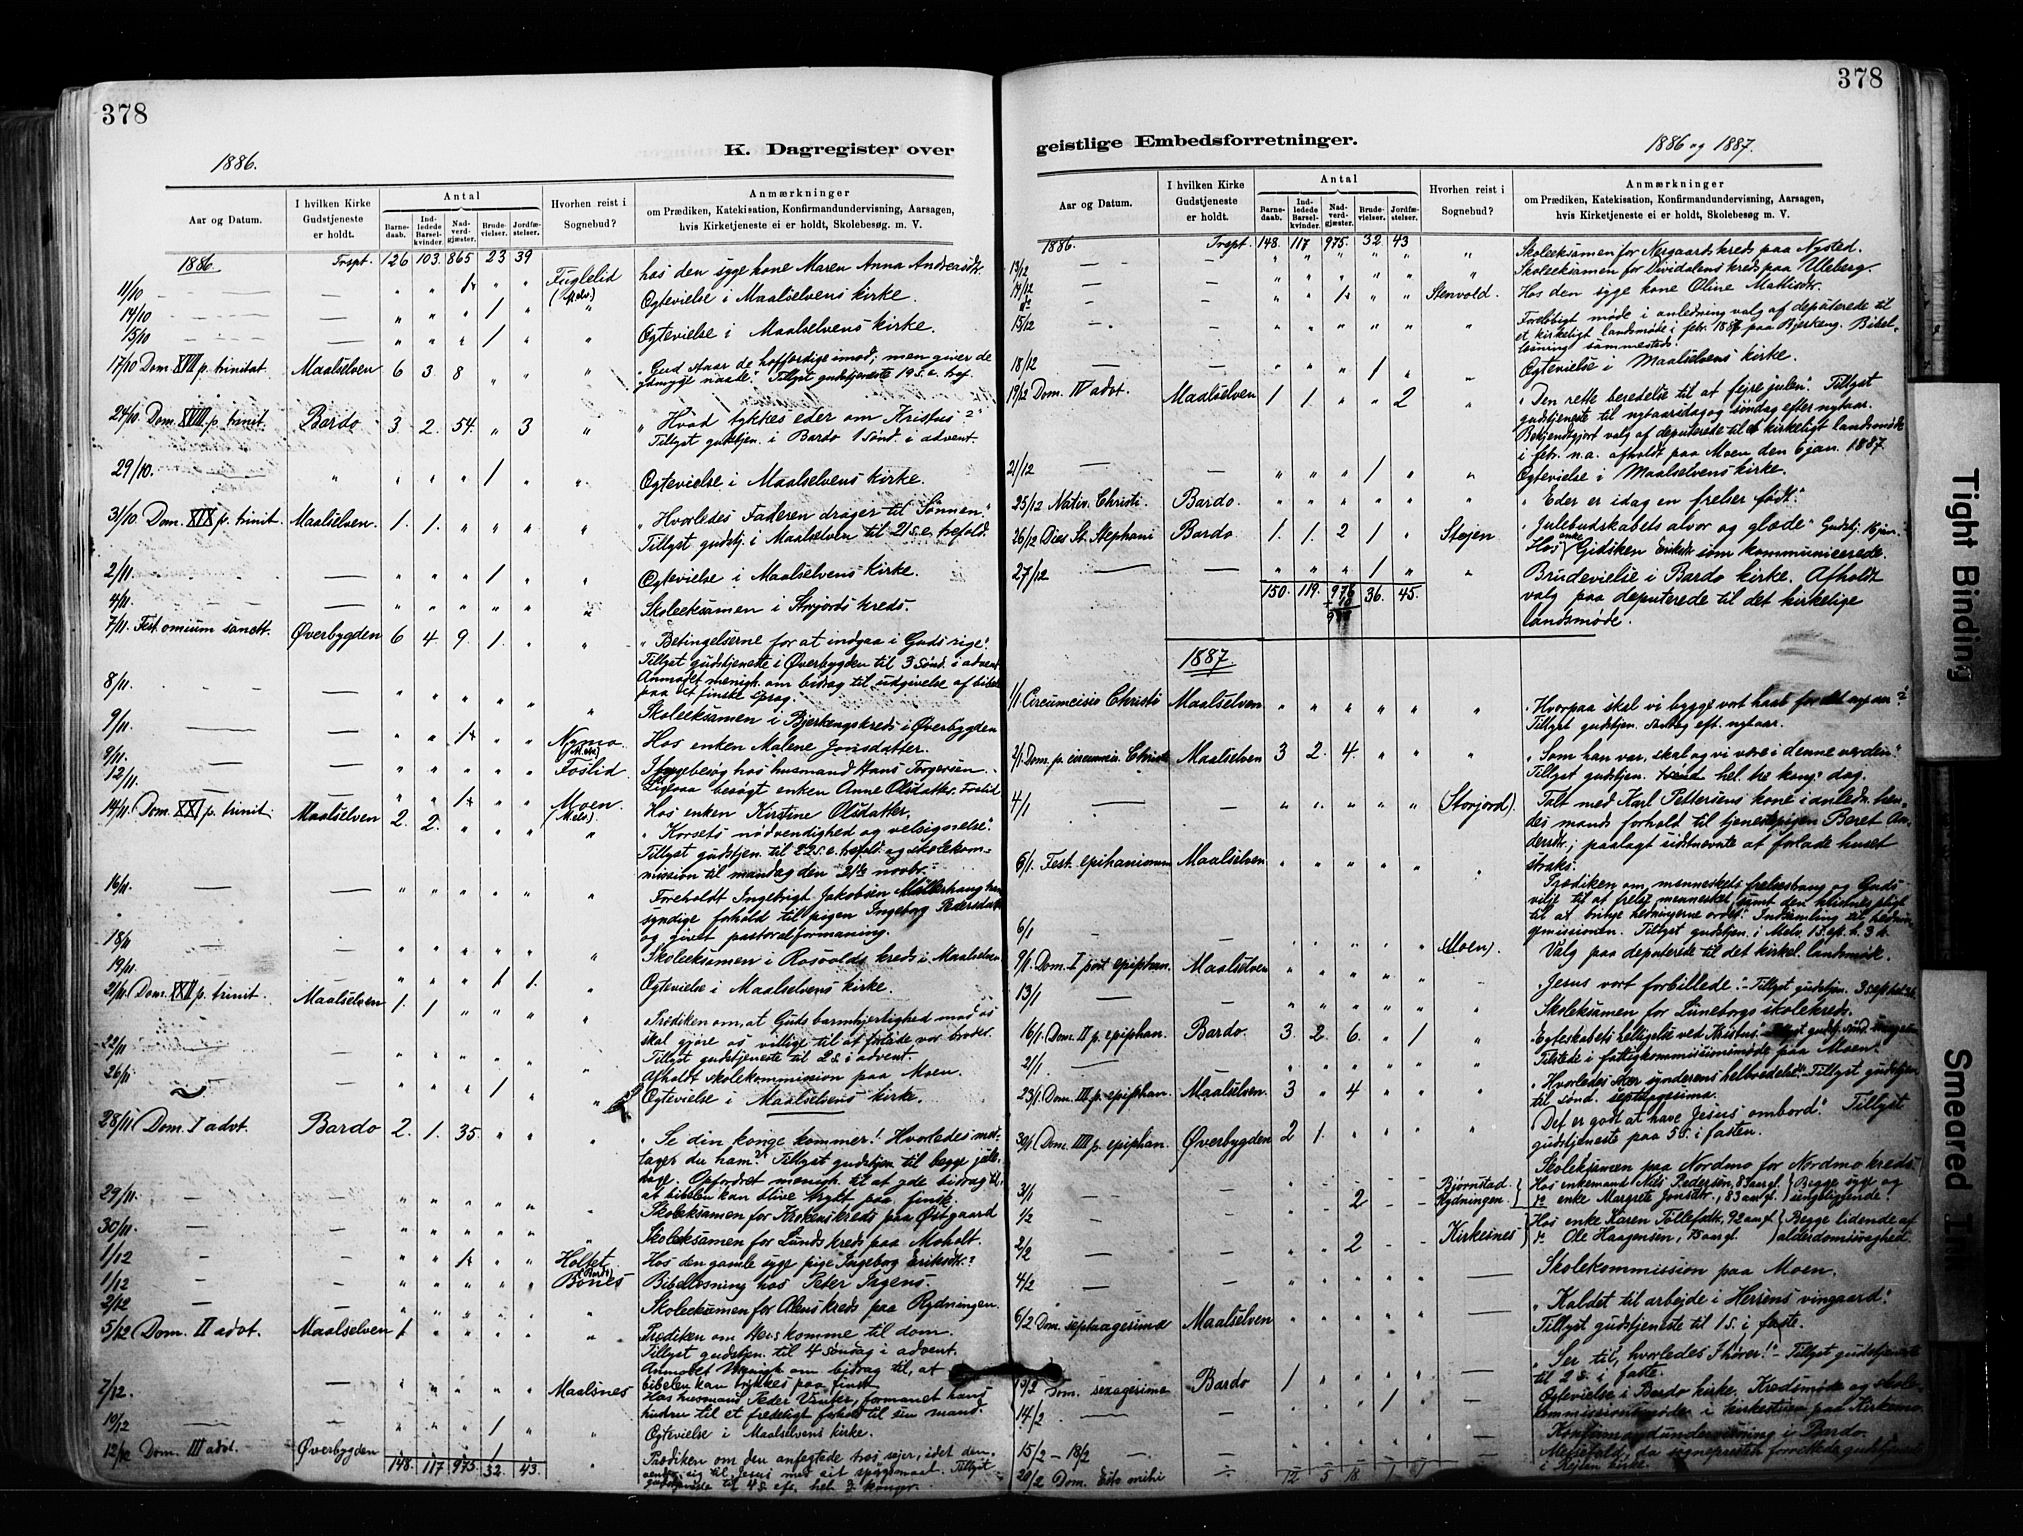 378
1886.
K. Dagregister over
Aar og Datum.
I hvilken Kirke Gudstjeneste er holdt.
Antal
Barnedaab.
Indledede Barselkvinder.
Nadverdgjæster.
Brudevielser.
Jordfæstelser.
Hvorhen reist i Sognebud?
Anmærkninger
om Prædiken, Katekisation, Konfirmandundervisning, Aarsagen,
hvis Kirketjeneste ei er holdt, Skolebesøg. m. V.
1886 Trspt. 126 103 865 23 39
11/10 Fuglelid hos den syge kone Maren Anna Andreasdtr.
14/10 1 Ogtevielse i Maalselvens kirke.
15/10 1 Ogtevielse i Maalselvens kirke.
17/10 Dom. XVII p. trinitat. Maalselven 6 3 8 "Gud staar de hoffærdige imod; men giver de
ydmyge naade." Tillyst gudstjeneste 19 s. e. tref.
24/10 Dom. XVIII p. trinit. Bardo 3 2 54 3 "Hvad tykkes eder om Kristus?"
Tillyst gudstjen. i Bardo 1 sønd. i advent.
29/10. 1 Ogtevielse i Maalselvens kirke.
31/10. Dom. XIX p. trinit. Maalselven. 1. 1. "Hvorledes Faderen drager til Sønnen."
Tillyst gudstj. i Maalselven til 21 s. e. trefold.
2/11. 1 Ogtevielse i Maalselvens kirke.
4/11. Skoleeksamen i Storjords kreds.
7/11. Fest. omium sanctt. Øverbygden 6 4 9. 1. "Betingelserne for at indgaa i Guds rige."
Tillyst gudstjeneste i Øverbygden til 3 sønd. i advent.
Anmodet menigh. om bidrag til udgivelse af bibel
paa et finske sprog.
8/11. Skoleeksamen i Bjerkengskreds i Øverbygden
9/11. Nymo (Mels) Hos enken Malene Jonsdatter.
9/11. Foslid Sygebesøg hos husmand Hans Torgersen.
12/11. Moen (Mels). Hos enken Kirstine Olsdatter.
14/11 Dom. XXI p. trinit. Maalselven 2. 2. "Korsets nødvendighed og velsignelse".
Tillyst gudstjen. til 22 s. e. trefold. og skolekommission
til mandag den 21de novbr.
16/11. Foreholdt Ingebrigt Jakobsen
syndige forhold til pigen Ingeborg Pedersdatter
og givet pastoralformaning.
18/11 Skoleeksamen i Rosvolds kreds i Maalselven
19/11. 1 1. Ogtevielse i Maalselvens kirke.
21/11 Dom. XXII p. trinit. Maalselven 1. 1 Prædiken om, at Guds barmhjertighed mod os
skal gjøre os villige til at forlade vor broder.
Tillyst gudstjeneste til 2 s. i advent.
22/11 Afholdt skolekommission paa Moen.
26/11 1 Ogtevielse i Maalselvens kirke.
28/11 Dom. I advt. Bardo 2. 1. 35. "Se din konge kommer! Hvorledes modtager
du ham?" Tillyst gudstjen. til begge juledage.
Opfordret menigh. til at yde bidrag til,
at bibelen kan blive trykt paa finsk.
29/11. Skoleeksamen for Krokens kreds paa Østgaard
30/11 Skoleeksamen for Lunds kreds paa Moholt.
1/12 Holtet (Bardo) Hos den gamle syge pige Ingeborg Eriksdtr.
1/12 Bones Bibellæsning hos Peter Ingens.
2/12 Skoleeksamen for Alens kreds paa Rydningen.
5/12 Dom. II advt. Maalselven 1 Prædiken om Hers komme til dom.
Tillyst gudstjen. til 4 søndag i advent.
Anmodet menigh. om bidrag til, at
bibelen kan trykkes paa finsk.
7/12. Maalsnes Hos husmand Peder Vinter, formanet hans
hustru til et fredeligt forhold til sin mand.
10/12 1 Ogtevielse i Maalselvens kirke.
12/12 Dom. III advt. Øverbygden Prædiken om den anfegtede tros sejer, idet den
vender sig til Jesus med sit spørgsmaal. Tillyst
gudstjeneste til
148. 117 975. 32. 43.
geistlige Embedsforretninger.
1886 og 1887.
378
Aar og Datum.
I hvilken Kirke Gudstjeneste er holdt.
Antal
Barnedaab.
Indledede Barselkvinder.
Nadverdgjæster.
Brudevielser.
Jordfæstelser.
Hvorhen reist i Sognebud?
Anmærkninger
om Prædiken, Katekisation, Konfirmandundervisning, Aarsagen,
hvis Kirketjeneste ei er holdt, Skolebesøg m. V.
1886. Trspt. 148. 117 975. 32 43 Skoleeksamen for Nergaards kreds paa Nysted.
13/12 Skoleeksamen for Dividalens kreds paa Uleberg.
14/12 Stenvold. Hos den syge kone Oline Mattisdtr.
15/12 Foreløbigt møde i anledning valg af deputerede til
et kirkeligt landsmøde i febr. 1887 paa Bjerkeng. Bibellæsning
sammesteds.
18/12 1 Ogtevielse i Maalselvens kirke.
19/12 Dom. IV advt. Maalselven 1. 1. 2 "Den rette beredelse til at fejre julen". Tillyst
gudstjeneste til nytaarsdag og søndag efter nytaar.
Bekjendtgjort valg af deputerede til et kirkeligt landsmøde
i febr. n.a. afholdt paa Moen den 6 jan. 1887.
21/12 1 Ogtevielse i Maalselvens kirke.
25/12 Nativ. Christi Bardo. "Eder er idag en frelser født."
26/12 Dies St. Stephani Bardo. 1. 1. 2 1 Stejen "Julebudskabets alvor og glæde" Gudstj. 16 jan.
Hos enke Gidsken Eriksdr. som kommunicerede.
27/12 1 Brudevielse i Bardo kirke. Afholdt
valg paa deputerede til det kirkelige
landsmøde.
150. 119. 976 36. 45.
1887.
1/1 Circumcisio Christi Maalselven "Hvorpaa skal vi bygge vort haab for det nye aar?"
Tillyst gudstjen. søndag eft. nytaar.
2/1 Dom. p. circumcis. Christi Maalselven 3 2. 4. "Som han var, skal og vi være i denne verden"
Tillyst gudstjen. hel. tre kong. dag.
4/1 (Storjord). Talt med Karl Pettersens kone i anledn. hendes
mands forhold til tjenestepigen Beret Andersdtr.;
paalagt sidstnævnte at forlade huset
straks.
6/1. Fest. epihanionum Maalselven Prædiken om menneskets frelsestrang og Guds
vilje til at frelse mennesket, samt den heidnes pligt
til at bringe hedningerne ordet. Indsamling til hedningemissionen.
Tillyst gudstjen. i Mels.
6/1 (Moen). Valg paa deputerede til det kirkel. landsmøde.
9/1. Dom. I post epiphan. Maalselven "Jesus vort forbillede." Tillyst gudstjen.
13/1 Skoleksamen for Luneborgs skolekreds.
16/1. Dom. II p. epiphan. Bardo. 3 2. 6. 1 "Egteskabets helligelse ved Kristus."
21/1. Tilstede i fattigkommissionsmøde paa Moen.
23/1. Dom. III p. epiphan. Maalselven. 3 4 "Hvorledes sker synderens helbredelse". Tillyst gudstjen.
til sønd. septuagesima.
30/1. Dom. IIII p. epiphan. Øverbygden 2 1. "Det er godt at have Jesus ombord." Tillyst
gudstjeneste paa 5 s. i fasten.
Skoleksamen paa Nordmo for Nordmo kreds.
31/1 Bjørnstad Rydningen. 2 Hos enkemand Nils Pedersen, 83 aar gl. Begge syge og
do enke Margrete Jonsdtr., 83 aar gl. sengeliggende.
1/2 Kirkesnes 2 Hos enke Karen Tollefsdtr., 92 aar gl. Begge lidende af
do Ole Haagensen, 75 aar gl. alderdomssvaghed.
2/2
4/2 Skolekommission paa Moen.
6/2 Dom. septuagesima Maalselven "Kaldet til arbejde i Herrens vingaard."
Tillyst gudstjeneste til 1 s. i faste.
13/2 Dom. sexagesima Bardo 1 "Ser til, hvorledes I hører!" - Tillyst gudstjeneste
til 2 s. i faste.
14/2. 1 Ogtevielse i Bardo kirke. Kredsmøde og skolekommissionsmøde
i kirkestuen paa Kirkemo.
15/2 - 18/2 Konfirmandundervisning i Bardo.
20/2 Dom. Esto mihi Messefald, da sognepresten forrettede gudstjeneste
i kirke.
12 5 18 1 1
Tight Binding
Smeared Ink